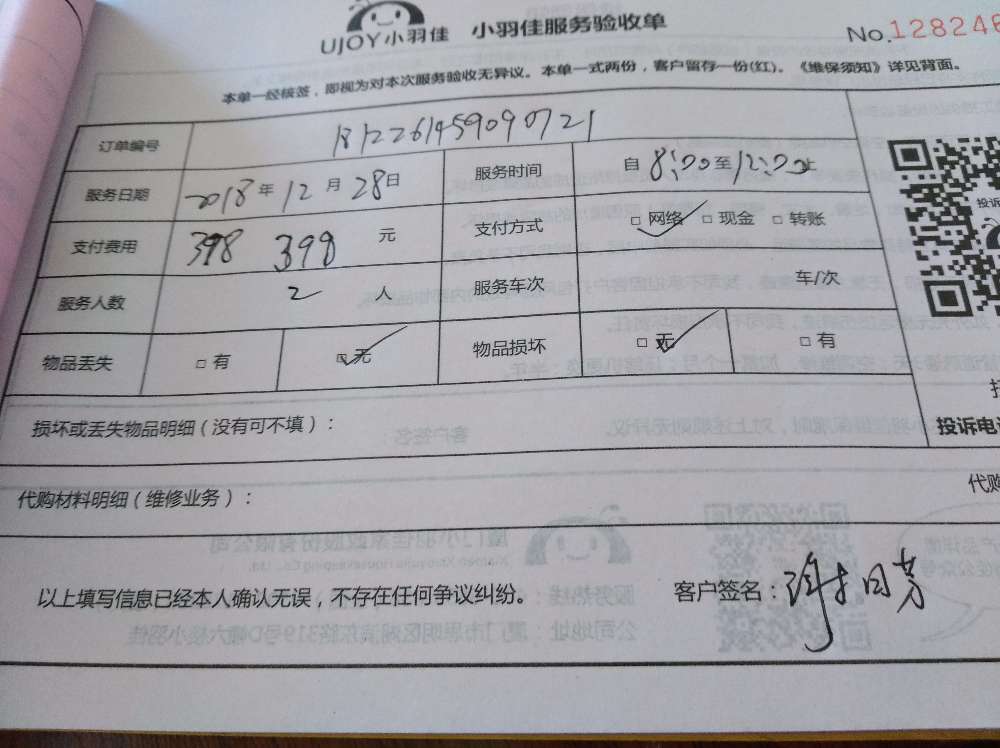 UJOY小羽佳 小羽佳服务验收单 No.128246
本单一经核签，即视为对本次服务验收无异议。本单一式两份，客户留存一份(红)。《维保须知》详见背面。
订单编号 181226145909 0721
服务日期 2018年12月28日 服务时间 自8:00至12:00止
支付费用 398 398 元 支付方式 □网络 □现金 □转账
服务人数 2 人 服务车次 车/次
物品丢失 □有 □无 物品损坏 □无 □有
损坏或丢失物品明细(没有可不填)：
投诉电
代购材料明细(维修业务)： 代购
以上填写信息已经本人确认无误，不存在任何争议纠纷。 客户签名：